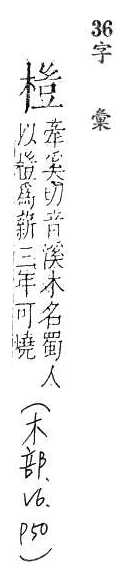 36 字彙
榿
牽奚切音溪木名蜀人
以榿爲薪三年可燒
(木部.V6.P50)